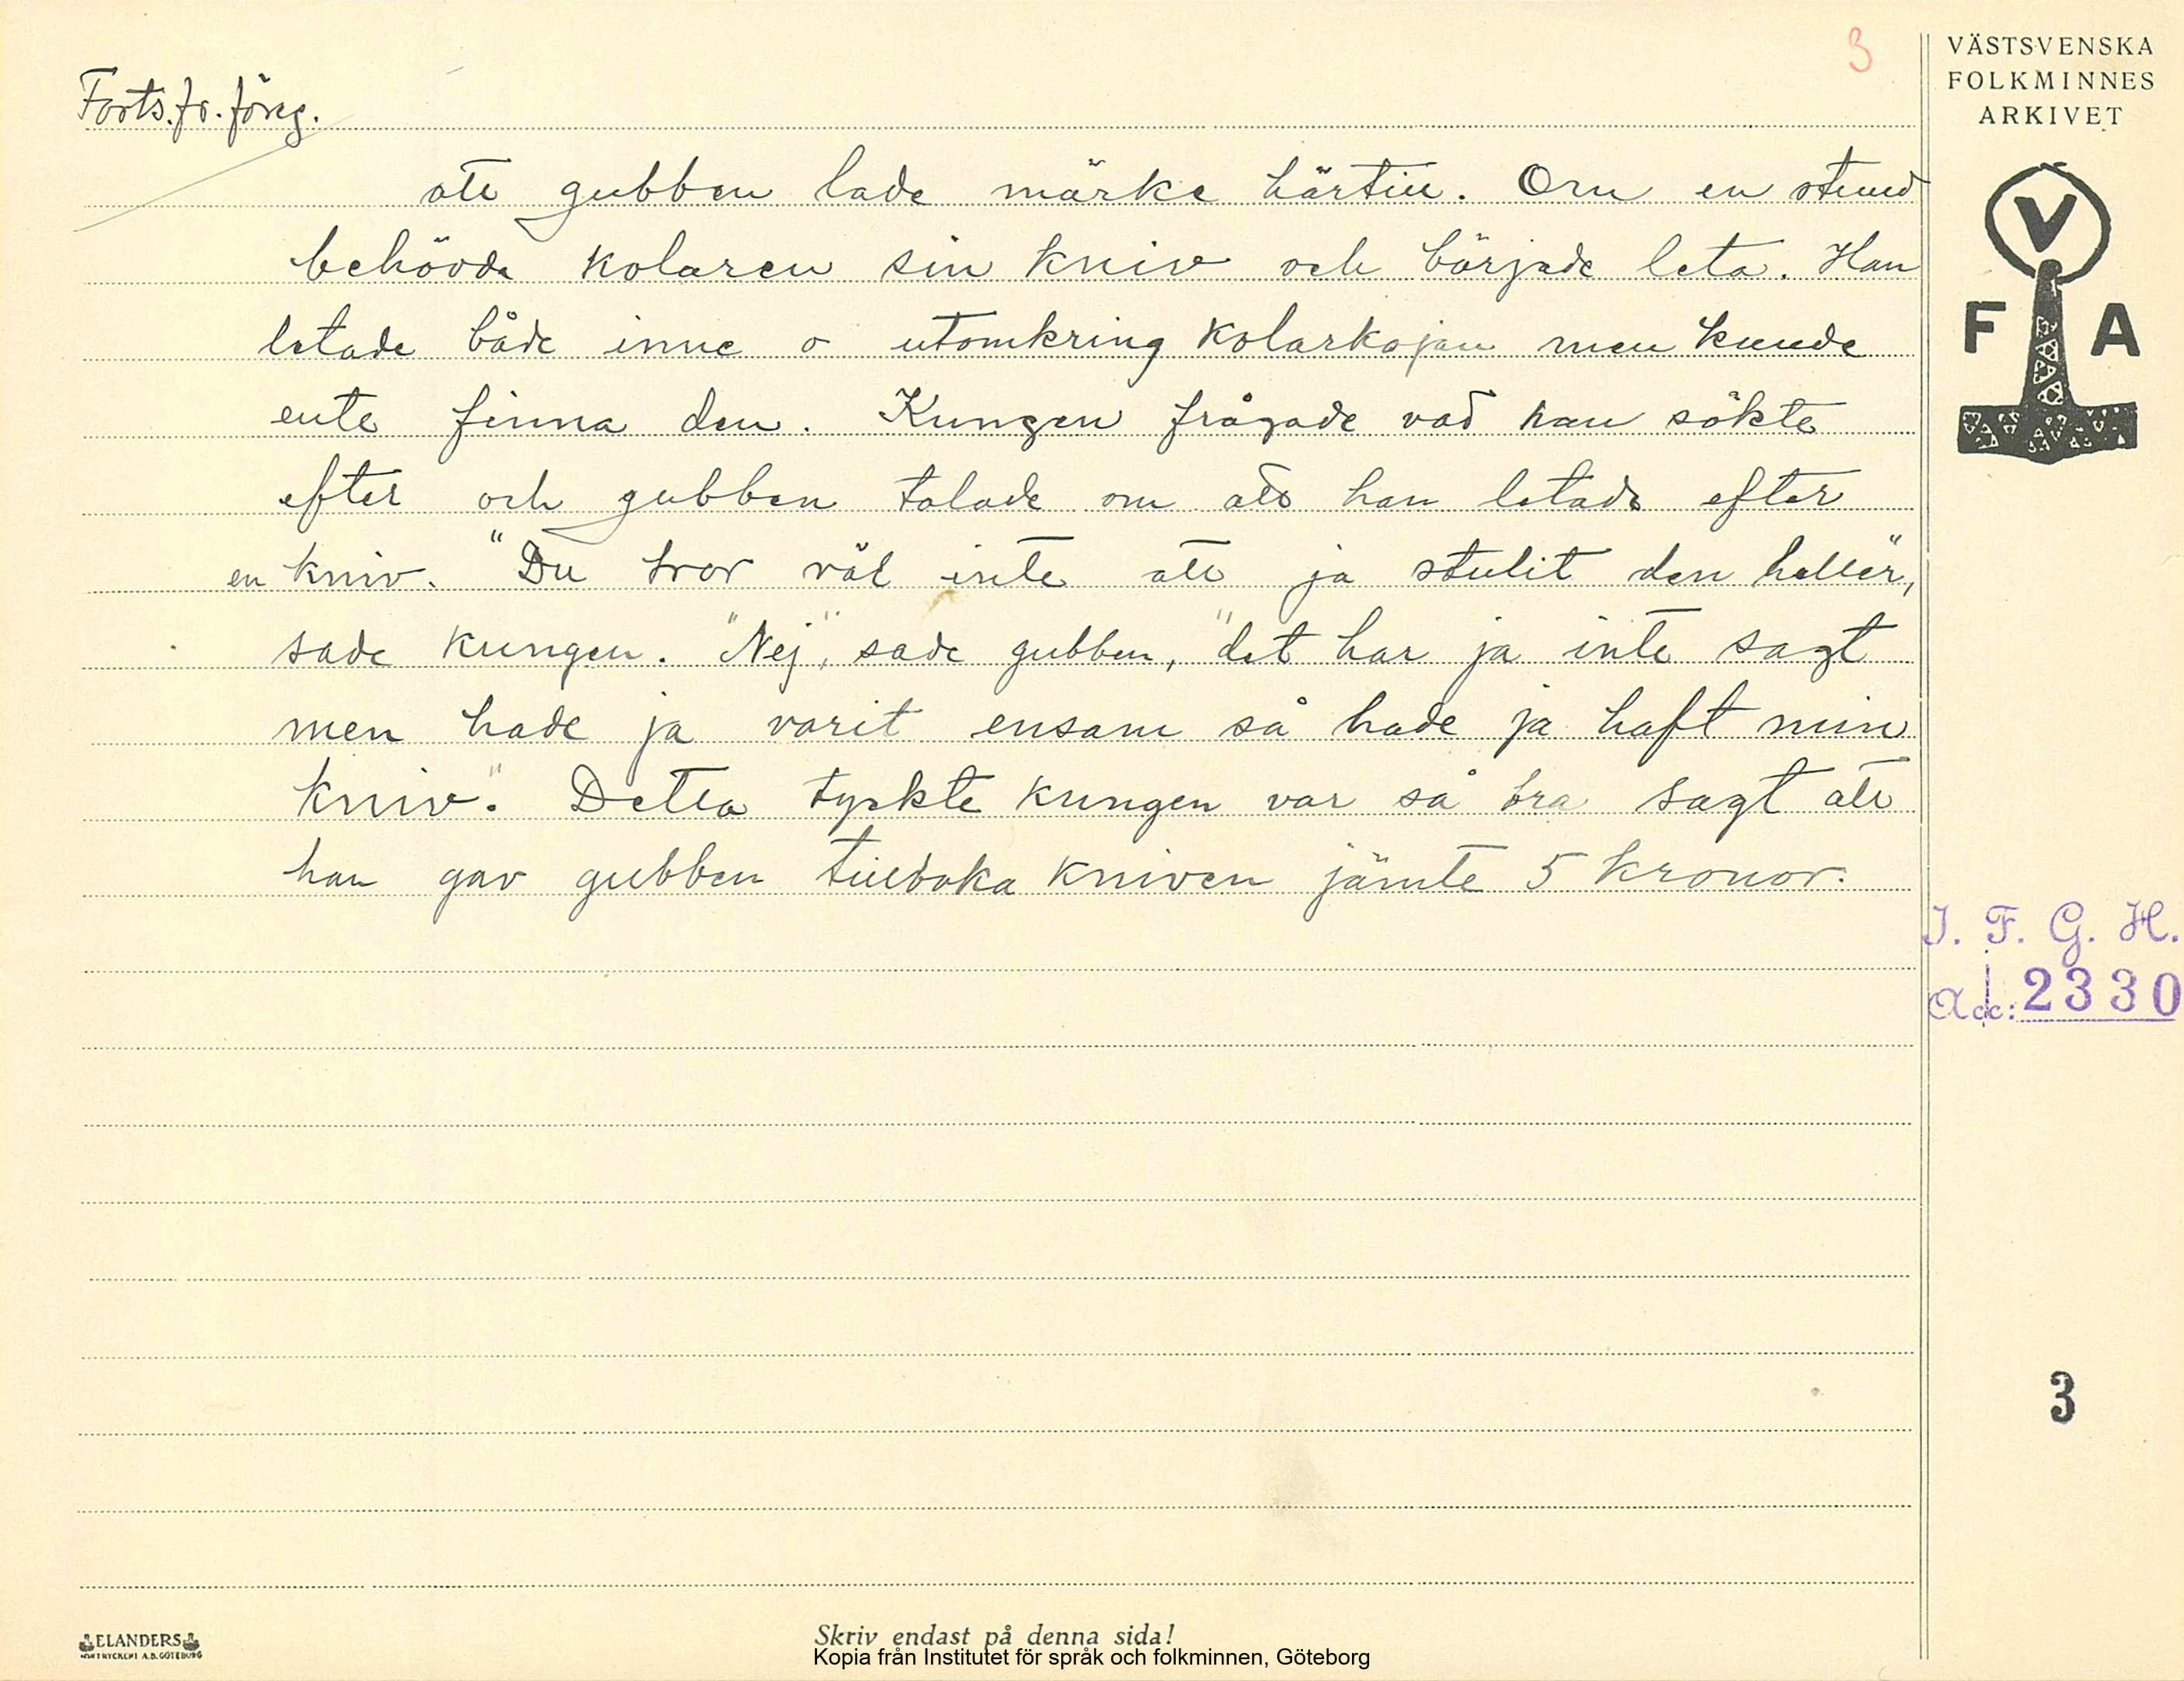 3
VÄSTSVENSKA
FOLKMINNES
ARKIVET
V
F A
Forts. fr. föreg.
att gubben lade märke härtill. Om en stund
behövde kolaren sin kniv och började leta. Han
letade både inne o utomkring kolarkojan men kunde
ente finna den. Kungen frågade vad han sökte
efter och gubben talade om att han letade efter
en kniv. "Du tror väl inte att ja stulit den heller",
sade kungen. "Nej", sade gubben, "det har ja inte sagt
men hade ja varit ensam så hade ja haft min
kniv". Detta tyckte kungen var så bra sagt att
han gav gubben tillbaka kniven jämte 5 kronor.
I. F. G. H.
Acc: 2330
3
ELANDERS
BOKTRYCKERI A.B. GÖTEBORG
Skriv endast på denna sida!
Kopia från Institutet för språk och folkminnen, Göteborg